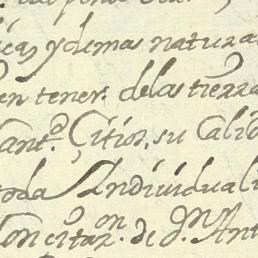 ícas y demas natura
en tener. delas tierra
cant.º Citios, su Calid
toda Individuali
Con citaz.on de D.n Ant